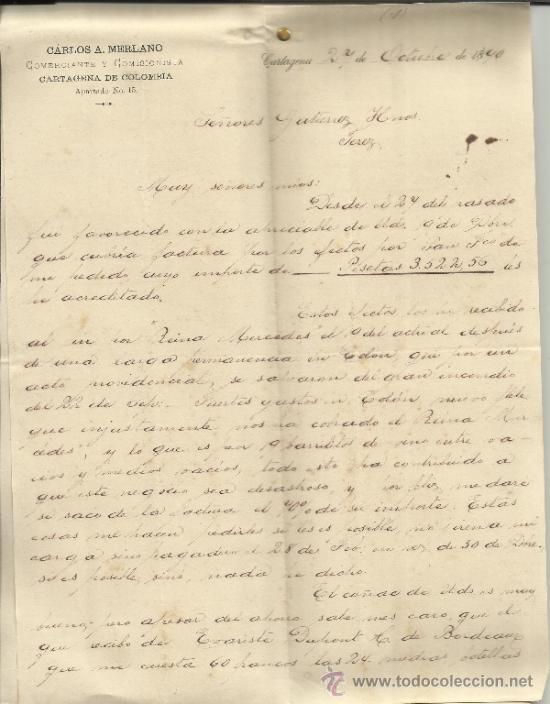 CÁRLOS A. MERLANO
COMERCIANTE Y COMISIONISTA
CARTAGENA DE COLOMBIA
Apartado No. 15.
Cartagena 27 de Octubre de 1890
Señores Gutierrez Hnos.
Jerez
Muy señores mios:
Desde el 27 del pasado
fui favorecido con la apreciable de Uds. 9 de
que cubria factura por los efectos por
mi pedido cuyo importe de Pesetas 3.522,56 les
he acreditado.
Estos efectos los he recibido
al "Reina Mercedes" el 9 del actual después
de una larga permanencia en Colón, que por un
acto providencial, se salvaron del gran incendio
del 22 de Gastos en Colón, nuevo flete
que injustamente nos ha cobrado el "Reina Mer-
cedes", y lo que es 19 barriles de vino entre va-
cios y medios vacios, todo esto ha contribuido a
que este negocio sea desastroso, y me dare
si saco de la factura el de su importe. Estas
cosas me hacen pedirles si les es posible, mi
carga sino pagadero el 28 de en vez de 30 de
si es posible, sino, nada he dicho.
El coñac de Uds. es muy
bueno; pero apesar del ahorro sale mas caro, que el
que recibo de Evariste Dupont & C. de Bordeaux
que me cuesta 60 francos las 24 medias botellas
www.todocoleccion.net